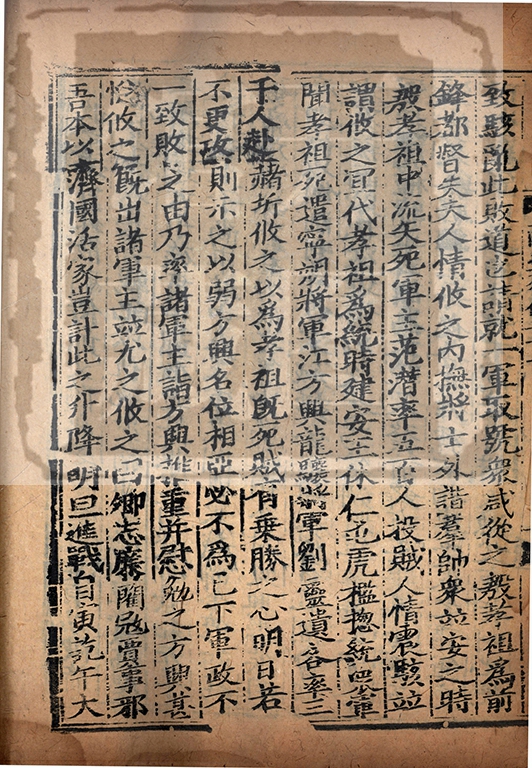 致駭亂此敗道也請就一軍取號衆咸從之殷孝祖為前
鋒都督失夫人情攸之內撫將士外諧羣帥衆並安之時
殷孝祖中流矢死軍主范潛率五百人投賊人情震駭並
謂攸之宜代孝祖為統時建安王休仁屯虎檻揔統衆軍
聞孝祖死遣寧朔將軍江方興龍驤將軍劉靈遺各率三
千人赴赭圻攸之以為孝祖旣死賊有乗勝之心明日若
不更攻則示之以弱方興名位相亞必不為己下軍政不
一致敗之由乃率諸軍主詣方興推重并慰勉之方興甚
悅攸之旣出諸軍主並尤之攸之曰卿忘廉藺寇賈事邪
吾本以濟國活家豈計此之升降明旦進戰自寅訖午大